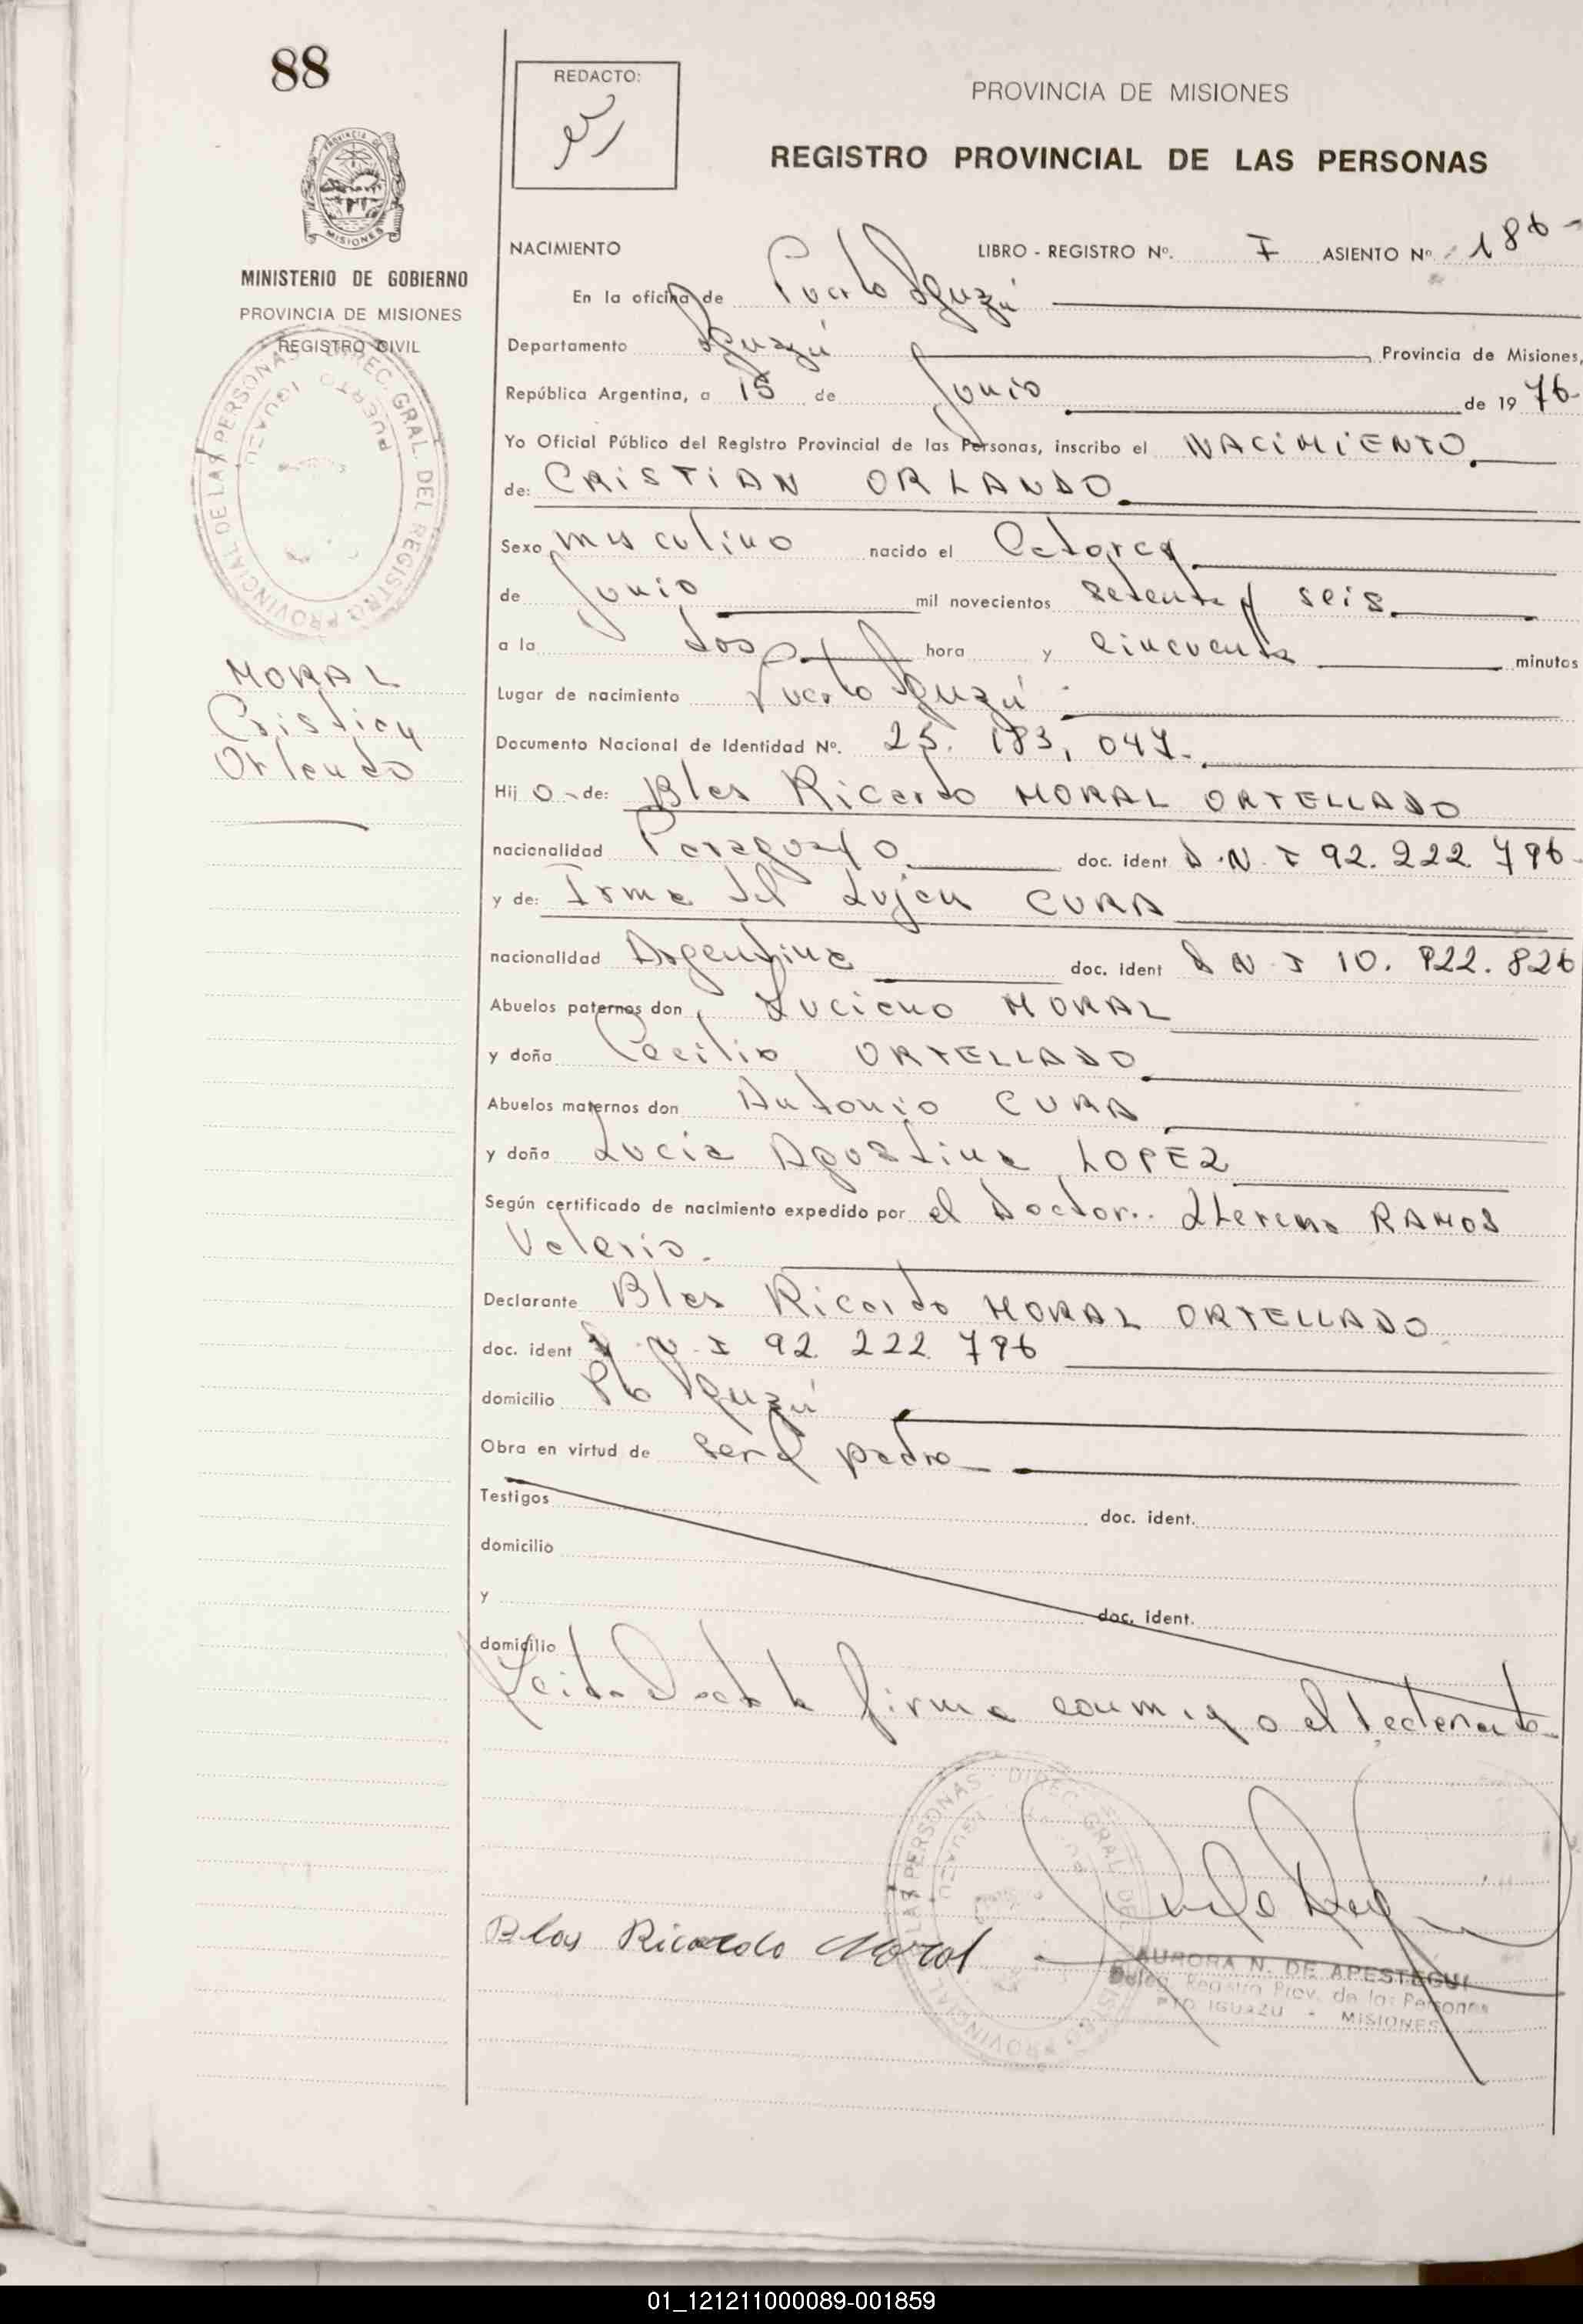 88
REDACTO:
PROVINCIA DE MISIONES
REGISTRO PROVINCIAL DE LAS PERSONAS
PROVINCIA DE
MISIONES
MINISTERIO DE GOBIERNO
PROVINCIA DE MISIONES
REGISTRO CIVIL
DIREC. GRAL. DEL REGISTRO PROVINCIAL DE LAS PERSONAS
PUERTO IGUAZU
MORAL
Cristian
Orlando
NACIMIENTO LIBRO - REGISTRO Nº. I ASIENTO Nº 186-
En la oficina de Puerto Iguazú
Departamento Iguazú Provincia de Misiones,
República Argentina, a 15 de Junio de 1976-
Yo Oficial Público del Registro Provincial de las Personas, inscribo el NACIMIENTO
de: CRISTIAN ORLANDO
Sexo masculino nacido el Catorce
de Junio mil novecientos setenta y seis.
a la dos hora y cincuenta minutos
Lugar de nacimiento Puerto Iguazú
Documento Nacional de Identidad Nº. 25. 183, 047-
Hij o- de: Blas Ricardo MORAL ORTELLADO
nacionalidad Paraguayo doc. ident D.N.I 92. 222 796-
y de: Irma del Lujan CURA
nacionalidad Argentina doc. ident D N I 10. 922. 826
Abuelos paternos don Luciano MORAL
y doña Cecilia ORTELLADO
Abuelos maternos don Antonio CURA
y doña Lucia Agostina LOPEZ
Según certificado de nacimiento expedido por el Doctor.. RAMOS
Valerio.
Declarante Blas Ricardo MORAL ORTELLADO
doc. ident D.N.I 92 222 796
domicilio Pto Iguazú
Obra en virtud de ser el padre
Testigos doc. ident.
domicilio
y doc. ident.
domicilio
Leida el acta la firma conmigo el declarante
DIREC. GRAL. DEL REGISTRO PROVINCIAL DE LAS PERSONAS
Blas Ricardo Moral
AURORA N. DE APESTEGUI
Deleg. Registro Prov. de las Personas
PTO IGUAZU - MISIONES
01_121211000089-001859